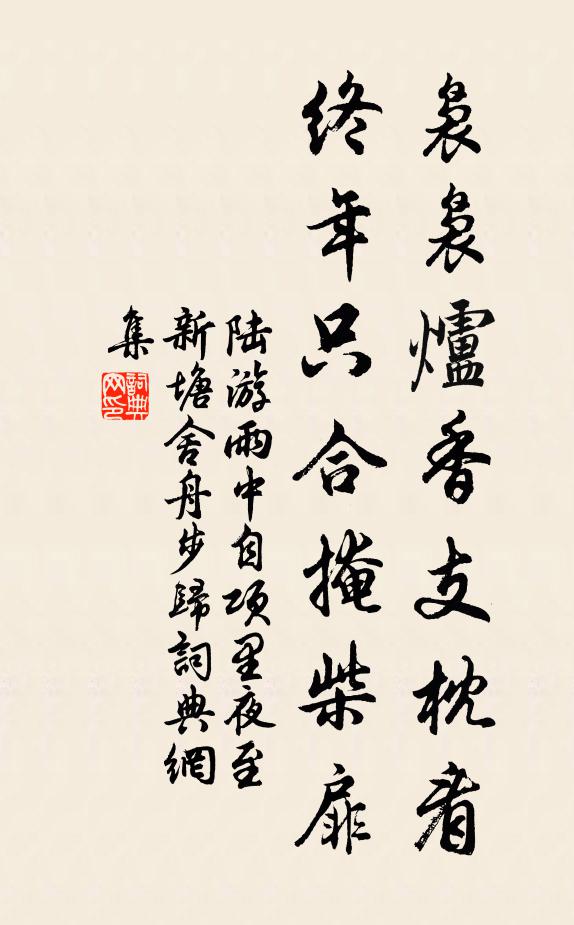 袅袅爐香支枕看
終年只合掩柴扉
陆游雨中自项里夜至
新塘舍舟步歸詞典網
集
詞典
网印